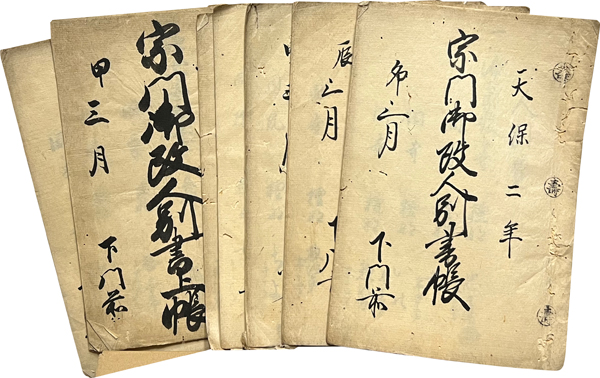 天保二年
宗門御改人別書帳
卯三月
下門前
辰三月
宗門御改人別書上帳
申三月
下門前